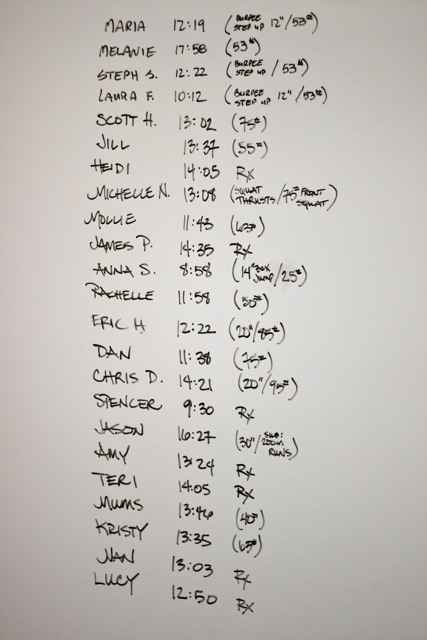 MARIA 12:19 (BURPEE STEP UP 12"/53#)
MELANIE 17:58 (53#)
STEPH S. 12:22 (BURPEE STEP UP / 53#)
LAURA F. 10:12 (BURPEE STEP UP 12"/53#)
SCOTT H. 13:02 (75#)
JILL 13:37 (55#)
HEIDI 14:05 Rx
MICHELLE N. 13:08 (SQUAT THRUSTS/75# FRONT SQUAT)
MOLLIE 11:43 (63#)
JAMES P. 14:35 Rx
ANNA S. 8:58 (14" BOX JUMP/25#)
RACHELLE 11:58 (50#)
ERIC H 12:22 (20"/85#)
DAN 11:38 (75#)
CHRIS D. 14:21 (20"/95#)
SPENCER 9:30 Rx
JASON 16:27 (30"/SUB: 200m RUNS)
AMY 13:24 Rx
TERI 14:05 Rx
MUMS 13:46 (40#)
KRISTY 13:35 (63#)
NAN 13:03 Rx
LUCY 12:50 Rx